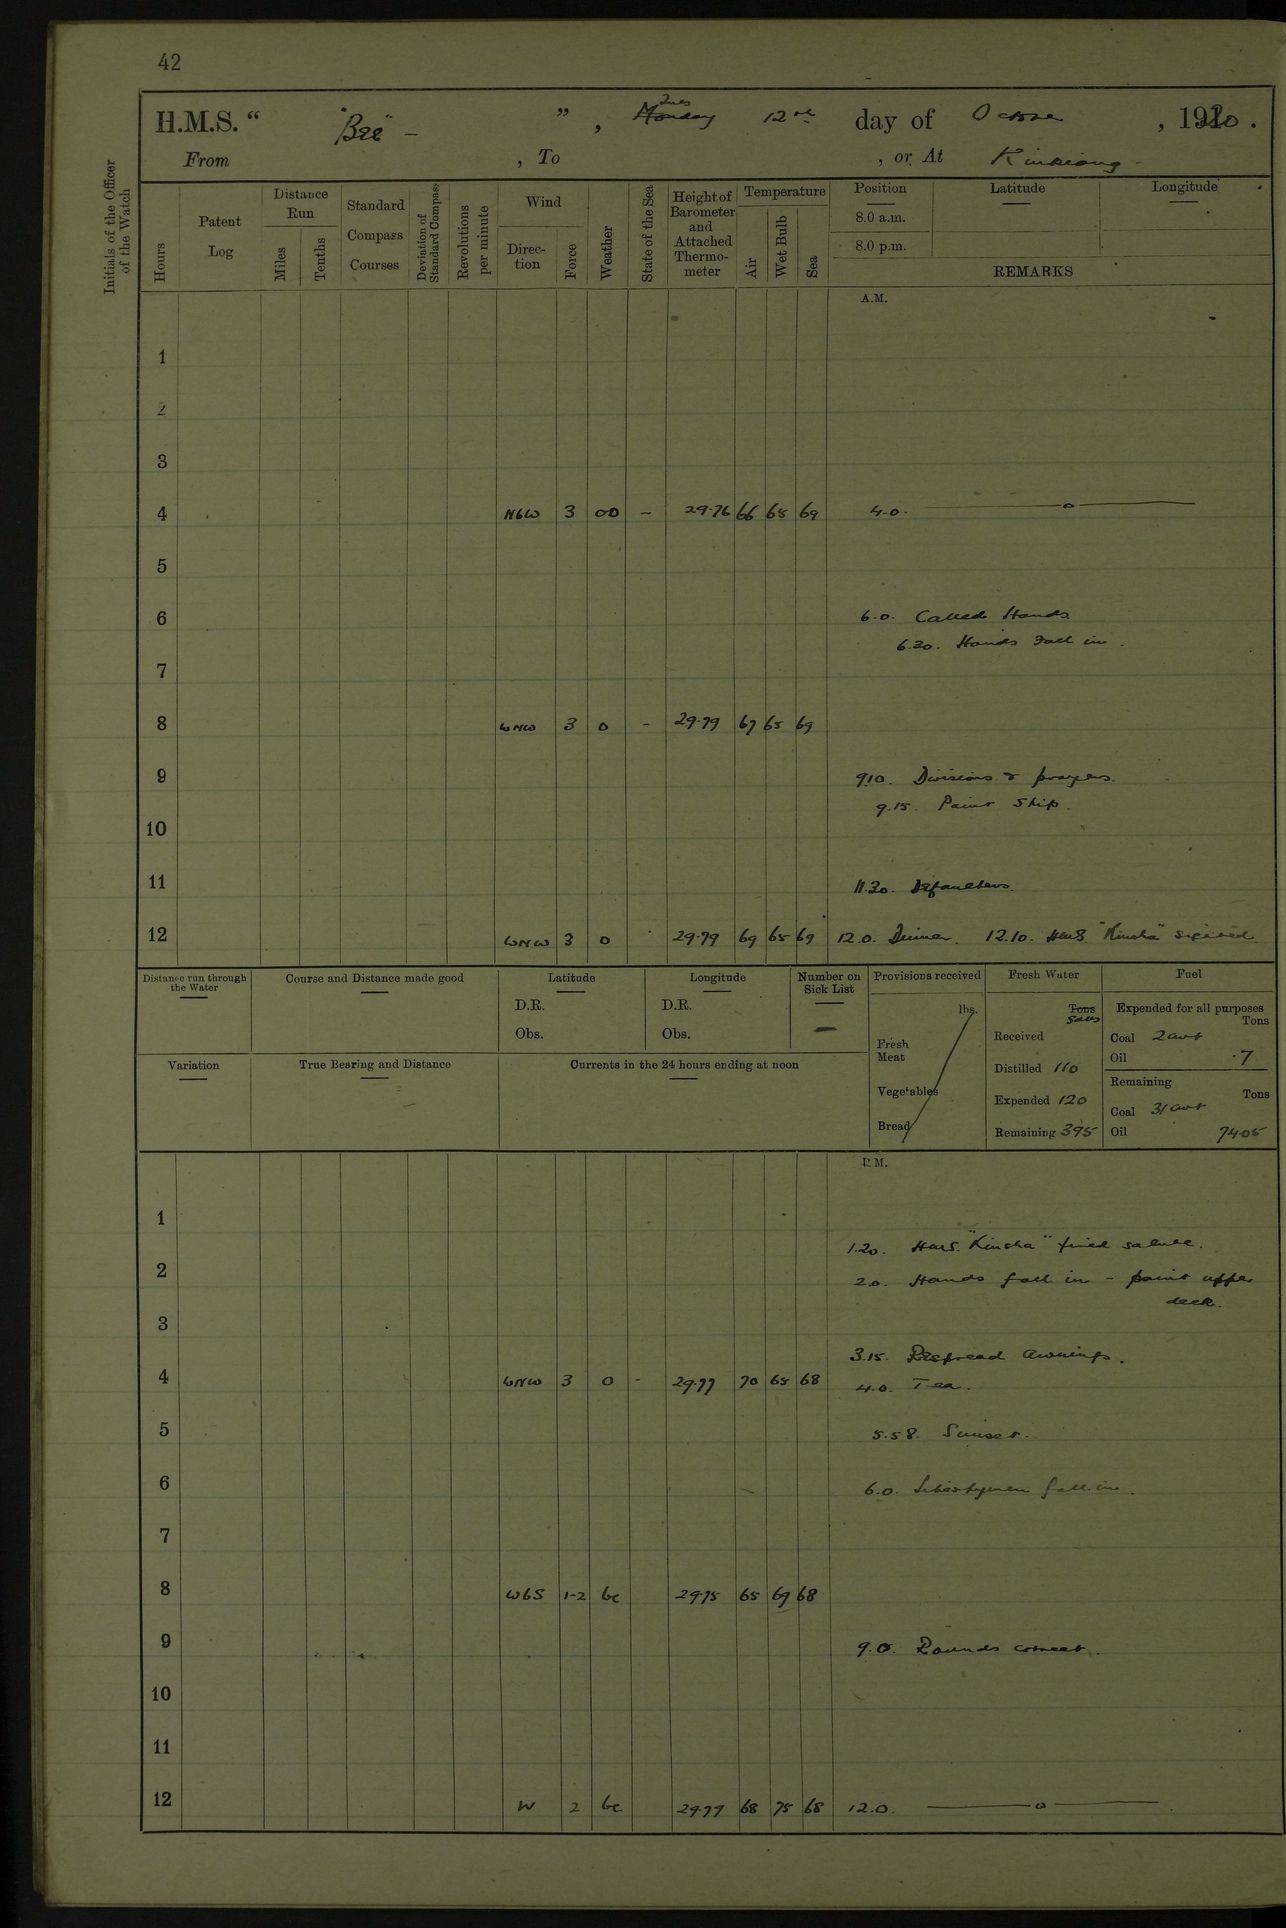 42
H.M.S. " "Bee" - " , Monday Tues 12th day of October , 1920 .
From , To , or At Kiukiang -
Initials of the Officer of the Watch
Hours
Patent Log
Distance Run
Miles
Tenths
Standard Compass Courses
Deviation of Standard Compass
Revolutions per minute
Wind
Direction
Force
Weather
State of the Sea
Height of Barometer and Attached Thermometer
Temperature
Air
Wet Bulb
Sea
Position
8.0 a.m.
8.0 p.m.
Latitude
Longitude
REMARKS
A.M.
1
2
3
4 NbW 3 oo - 29.76 66 65 69 4.0. ——o——
5
6 6.0. Called Hands.
6.30. Hands Fall in.
7
8 WNW 3 o - 29.79 67 65 69
9 910. Divisions & prayers.
9.15. Paint Ship.
10
11 11.30. Defaulters.
12 WNW 3 o 29.79 69 65 69 12.0. Dinner. 12.10. HMS. "Kinsha"
Distance run through the Water
Course and Distance made good
Latitude
D.R.
Obs.
Longitude
D.R.
Obs.
Number on Sick List
—
Provisions received
lbs.
Fresh Meat
Vegetables
Bread
Fresh Water
Tons
Received
Distilled 110
Expended 120
Remaining 395
Fuel
Expended for all purposes
Tons
Coal 2 cwt
Oil .7
Remaining
Tons
Coal 31 cwt
Oil 7405
Variation
True Bearing and Distance
Currents in the 24 hours ending at noon
P.M.
1
1.20. HMS. "Kinsha" fired salute.
2 2.0. Hands fall in - paint upper
deck.
3
3.15. Respread Awnings.
4 WNW 3 o - 29.77 70 65 68 4.0. Tea.
5 5.58. Sunset.
6 6.0. Libertymen fall in.
7
8 WbS 1-2 bc 29.75 65 69 68
9 9.0. Rounds correct.
10
11
12 W 2 bc 29.77 68 75 68 12.0. ——o——